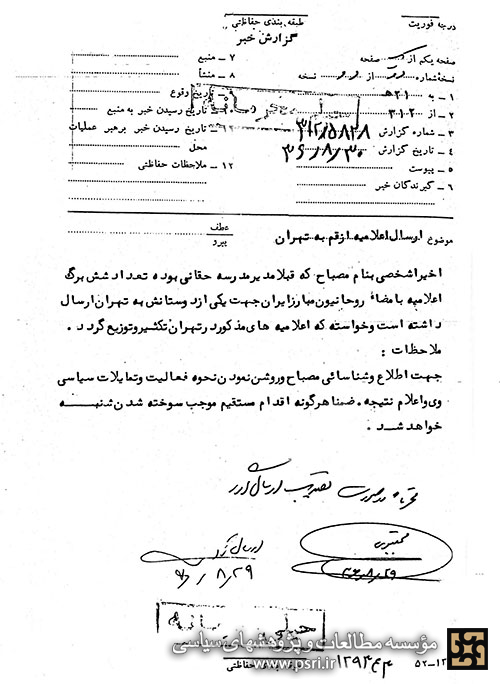 درجه فوریت
طبقه بندی حفاظتی
گزارش خبر
صفحه یکم از یک صفحه
نسخه شماره از نسخه
۱ ـ به ۳۱۰ هـ
۲ ـ از ۳۱۲
۳ ـ شماره گزارش ۳۱۲/۵۸۲۸
۴ ـ تاریخ گزارش ۳۶/۸/۳۰
۵ ـ پیوست
۶ ـ گیرندگان خبر
۷ ـ منبع
۸ ـ منشأ
۹ ـ تاریخ وقوع
۱۰ ـ تاریخ رسیدن خبر به منبع
۱۱ ـ تاریخ رسیدن خبر برهبر عملیات
محل
۱۲ ـ ملاحظات حفاظتی
خیلی محرمانه
موضوع ارسال اعلامیه ازقم به تهران
عطف
پیرو
اخیراشخصی بنام مصباح که قبلا مدیرمدرسه حقانی بوده تعداد شش برگ
اعلامیه با مضاء روحانیون مبارزایران جهت یکی ازد وستانش به تهران ارسال
داشته است وخواسته که اعلامیه های مذکورد رتهران تکثیروتوزیع گرد د .
ملاحظات :
جهت اطلاع وشناسائی مصباح وروشن نمودن نحوه فعالیت وتمایلات سیاسی
وی واعلام نتیجه . ضمنا هرگونه اقدام مستقیم موجب سوخته شدن شنبه
خواهد شد .
ارسال گردد
۸/۲۹
خیلی محرمانه
طبقه بندی حفاظتی
۵۲-۱۲
مؤسسه مطالعات و پژوهشهای سیاسی
www.psri.ir